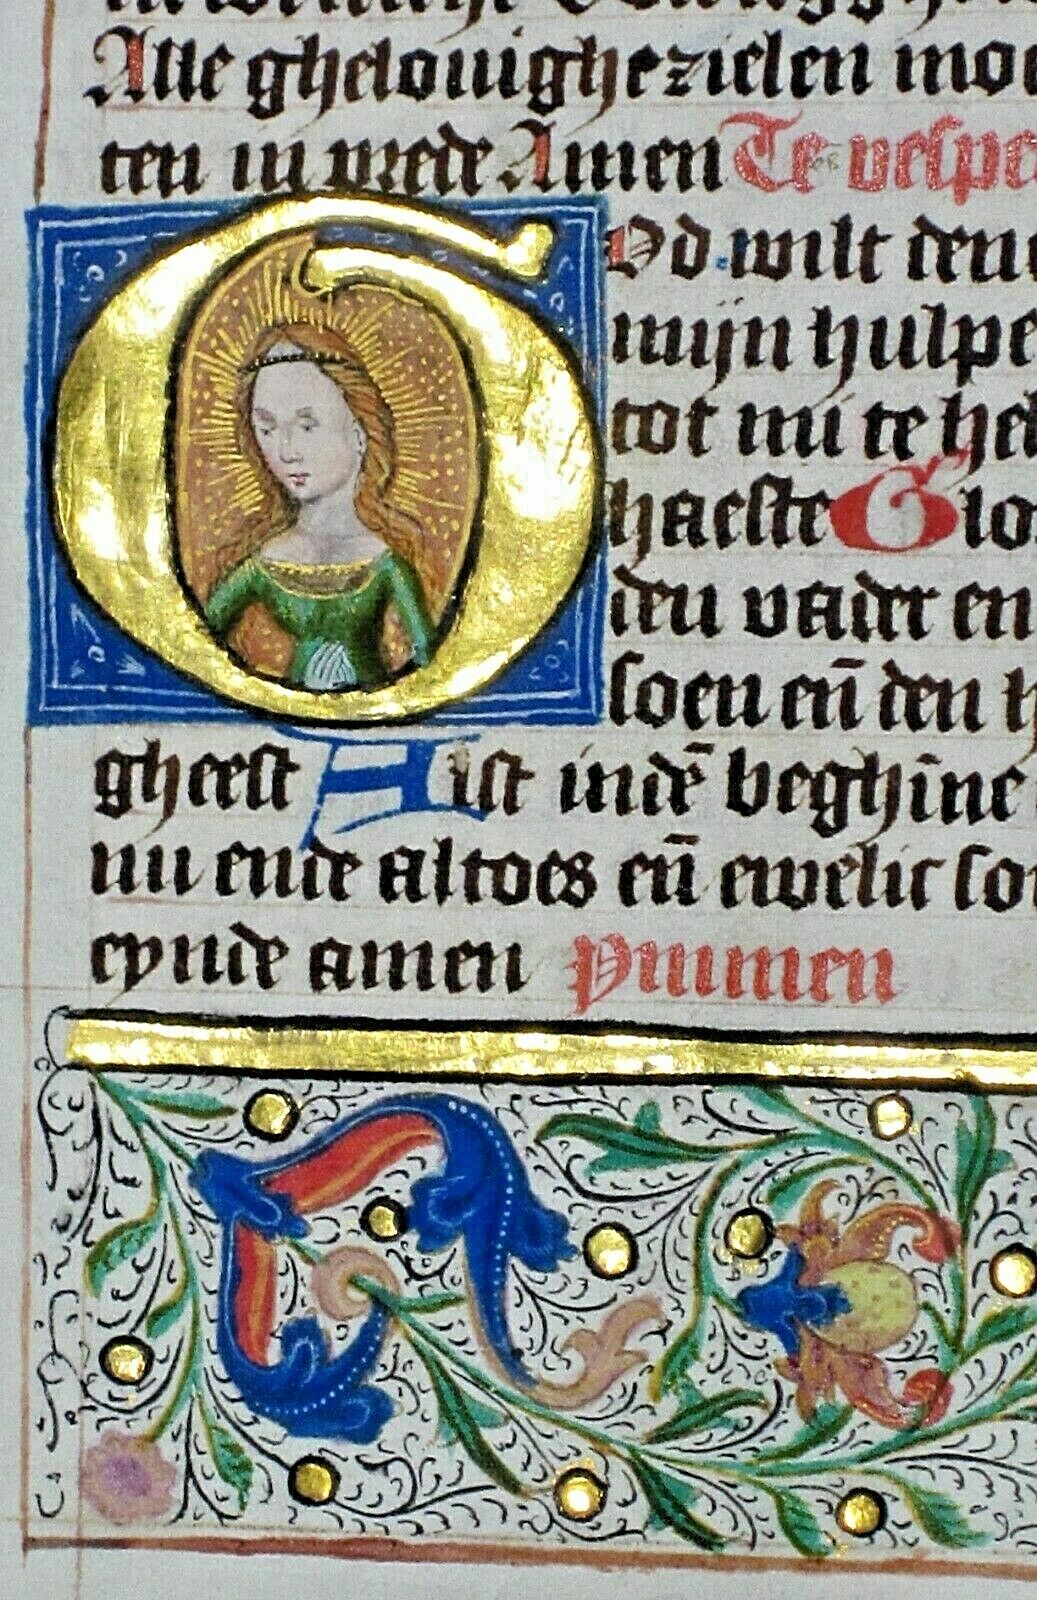 Alle ghelouighe zielen moe
ten in vrede Amen Te vespe
God wilt den
mijn hulpe
tot mi te hel
haeste Glo
den vader en
soen en̄ den h
gheest Alst indē beghīne
nu ende altoes en̄ ewelic so
eynde amen Ymmen